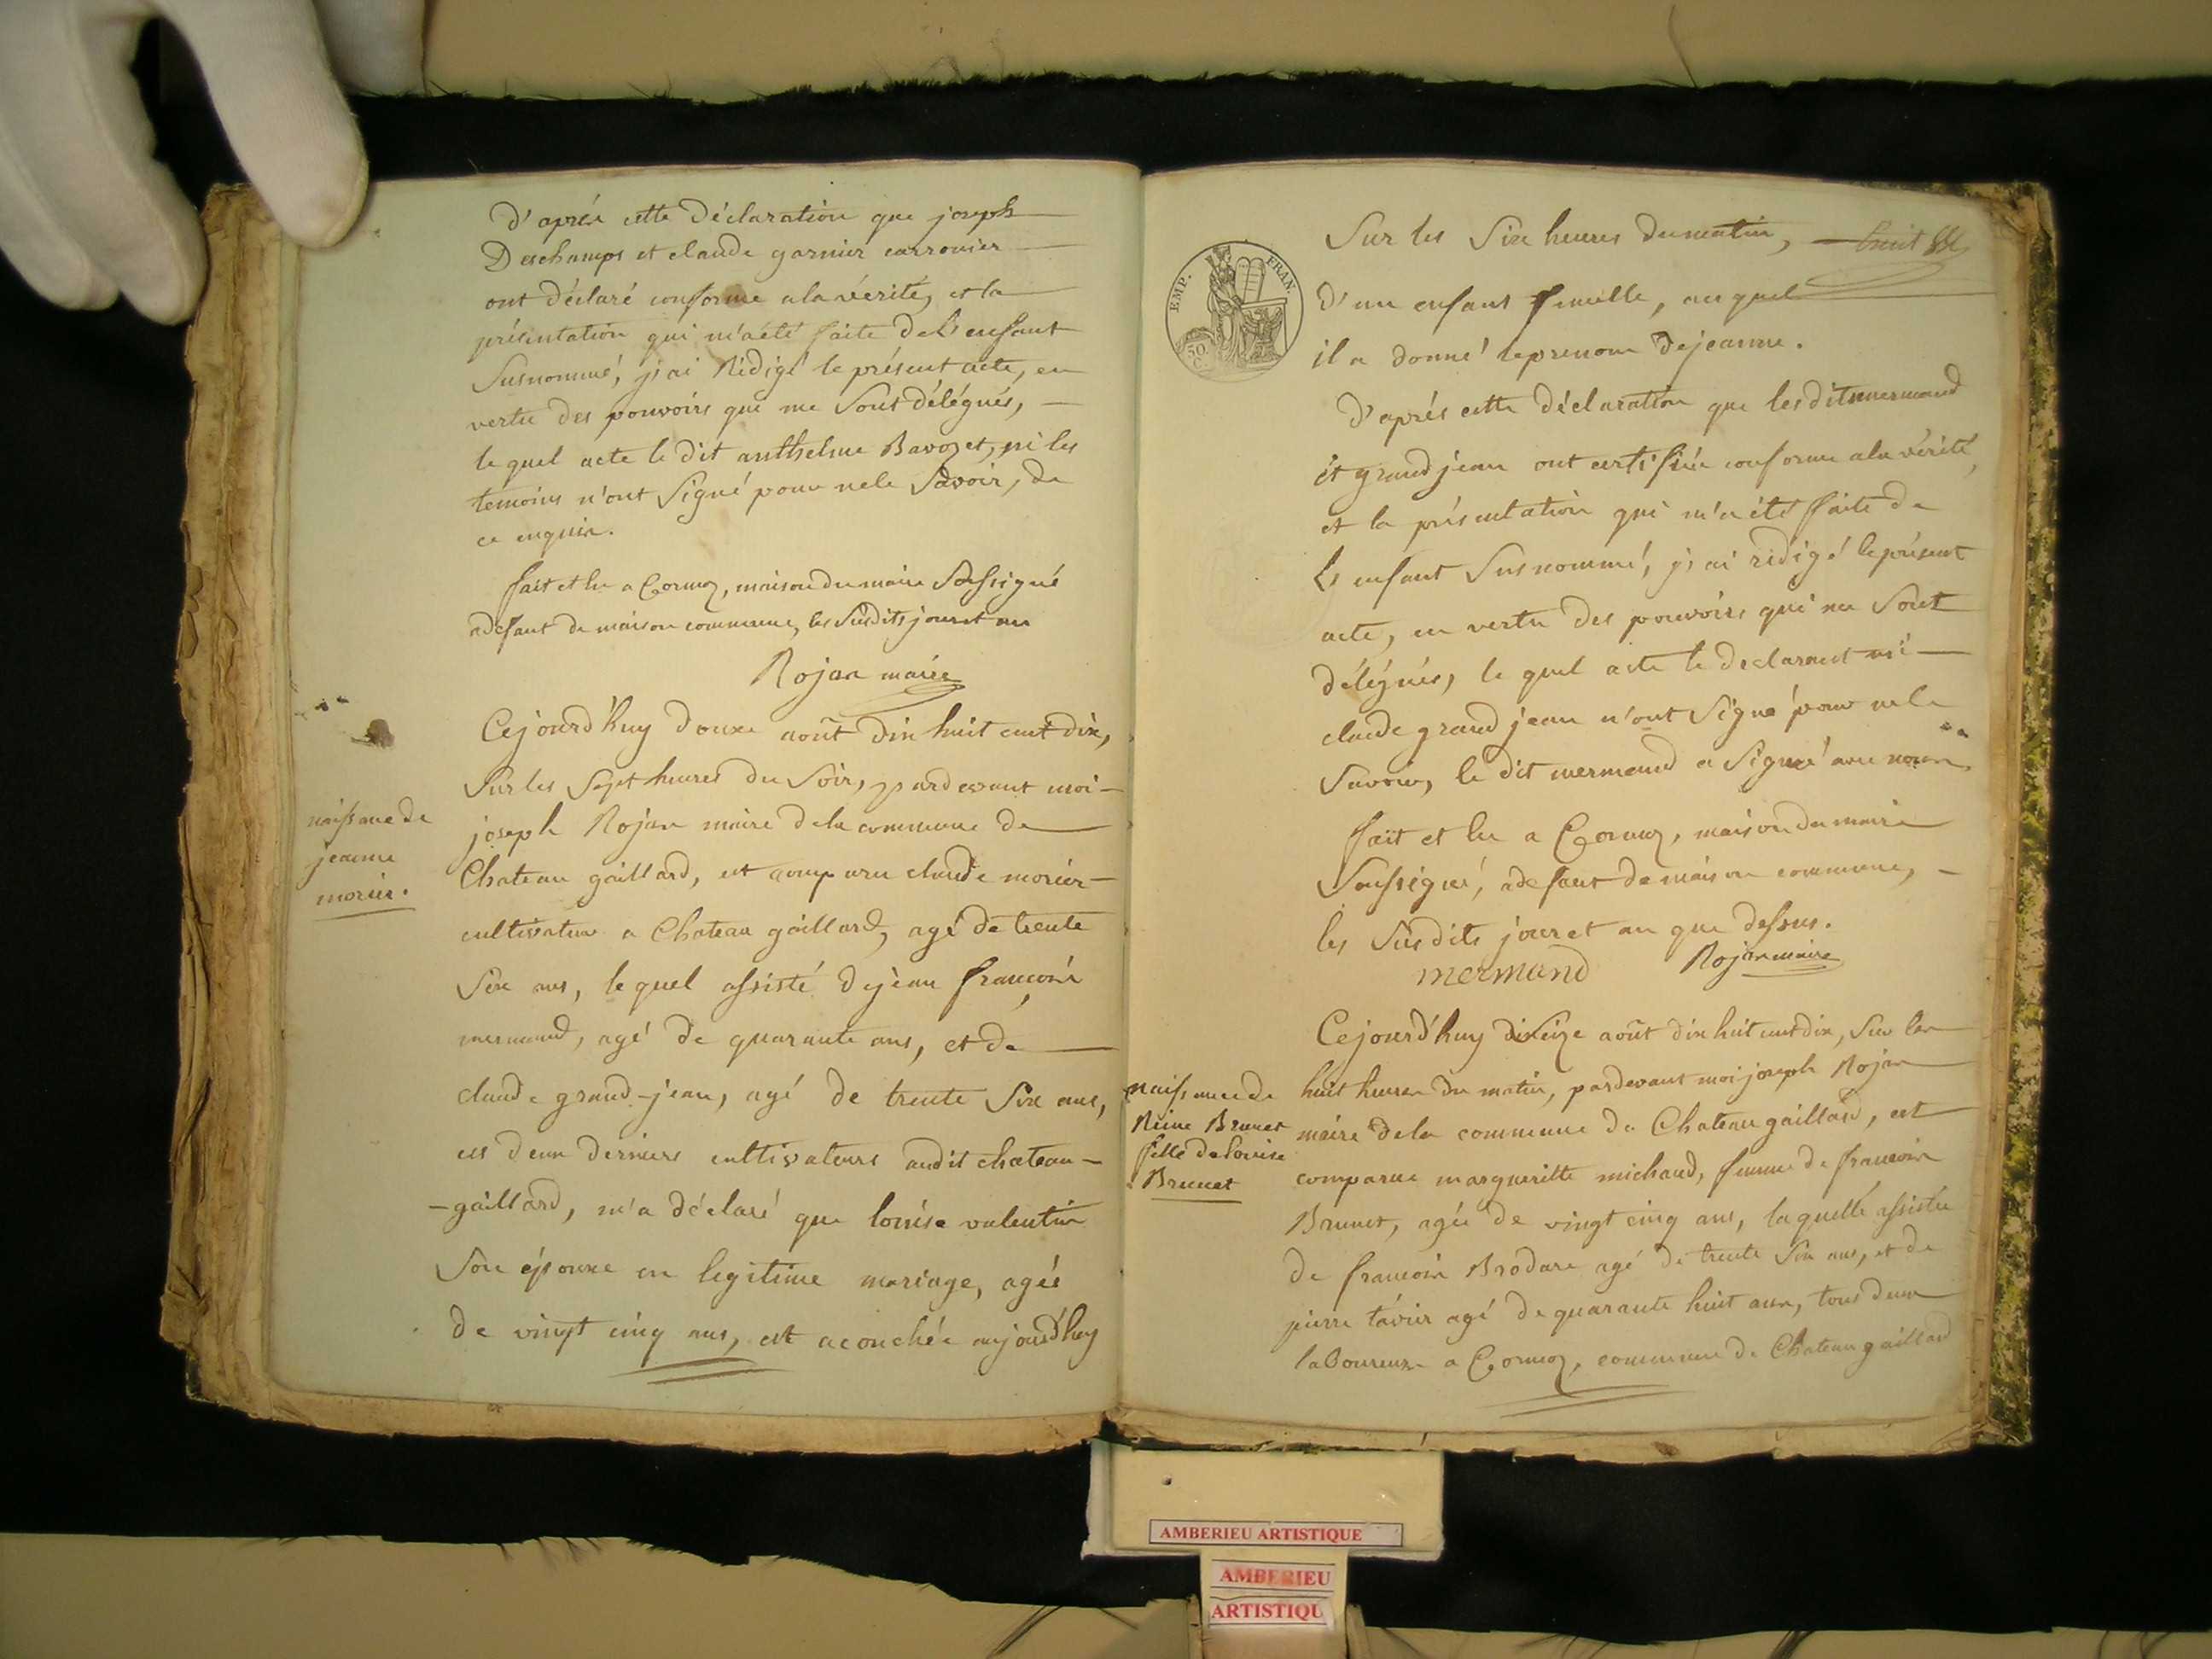 D'après cette Déclaration que joseph
Deschamps et claude garnier carronier
ont déclaré conforme ala vérité, et la
présentation qui m'a été faite de L'enfant
Susnommé, j'ai Rédigé le présent acte, en
vertu des pouvoirs qui me Sont délégués,
le quel acte le dit anthelme Bavozet, ni les
temoins n'ont Signé pour ne le Savoir, de
ce enquis.
fait et lu a Cormoz, maison du maire Soussigné
adefaut de maison commune, les Susdits jour et an
Rojan maire
naissance de
jeanne
morier.
Cejourd'huy douze août dix huit cent dix,
Sur les Sept heures du Soir, pardevant moi
joseph Rojan maire dela commune de
Chateau gaillard, est comparu claude morier
cultivateur a Chateau gaillard, agé de trente
Six ans, le quel assisté de jean françois
mermand, agé de quarante ans, et de
claude grand-jean, agé de trente Six ans,
ces deux derniers cultivateurs audit chateau-
-gaillard, m'a déclaré que louise valentin
Son épouse en legitime mariage, agée
de vingt cinq ans, est acouchée aujourd'huy
EMP. FRAN.
50
C.
Sur les Six heures du matin, huit
D'un enfant femelle, au quel
il a donné le prenom de jeanne.
D'après cette déclaration que les dits mermand
et grand jean ont certifiée conforme ala vérité,
et la présentation qui m'a été faite de
L'enfant Susnommé, j'ai rédigé le présent
acte, en vertu des pouvoirs qui me Sont
délégués, le quel acte le declarant ni
claude grand jean n'ont Signé pour ne le
Savoir, le dit mermand a Signé avec nous.
fait et lu a Cormoz, maison du maire
Soussigné, adefaut de maison commune,
les Susdits jour et an que dessus.
mermand Rojan maire
naissance de
Reine Brunet
fille de louise
Brunet
Cejourd'huy août dix huit cent dix, Sur les
huit heures du matin, pardevant moi joseph Rojan
maire dela commune de Chateau gaillard, est
comparue margueritte michaud, femme de francois
Brunet, agée de vingt cinq ans, la quelle assistée
de francois Brodare agé de trente Six ans, et de
pierre tavier agé de quarante huit ans, tous deux
laboureurs a Cormoz, commune de Chateau gaillard
AMBERIEU ARTISTIQUE
AMBERIEU
ARTISTIQU